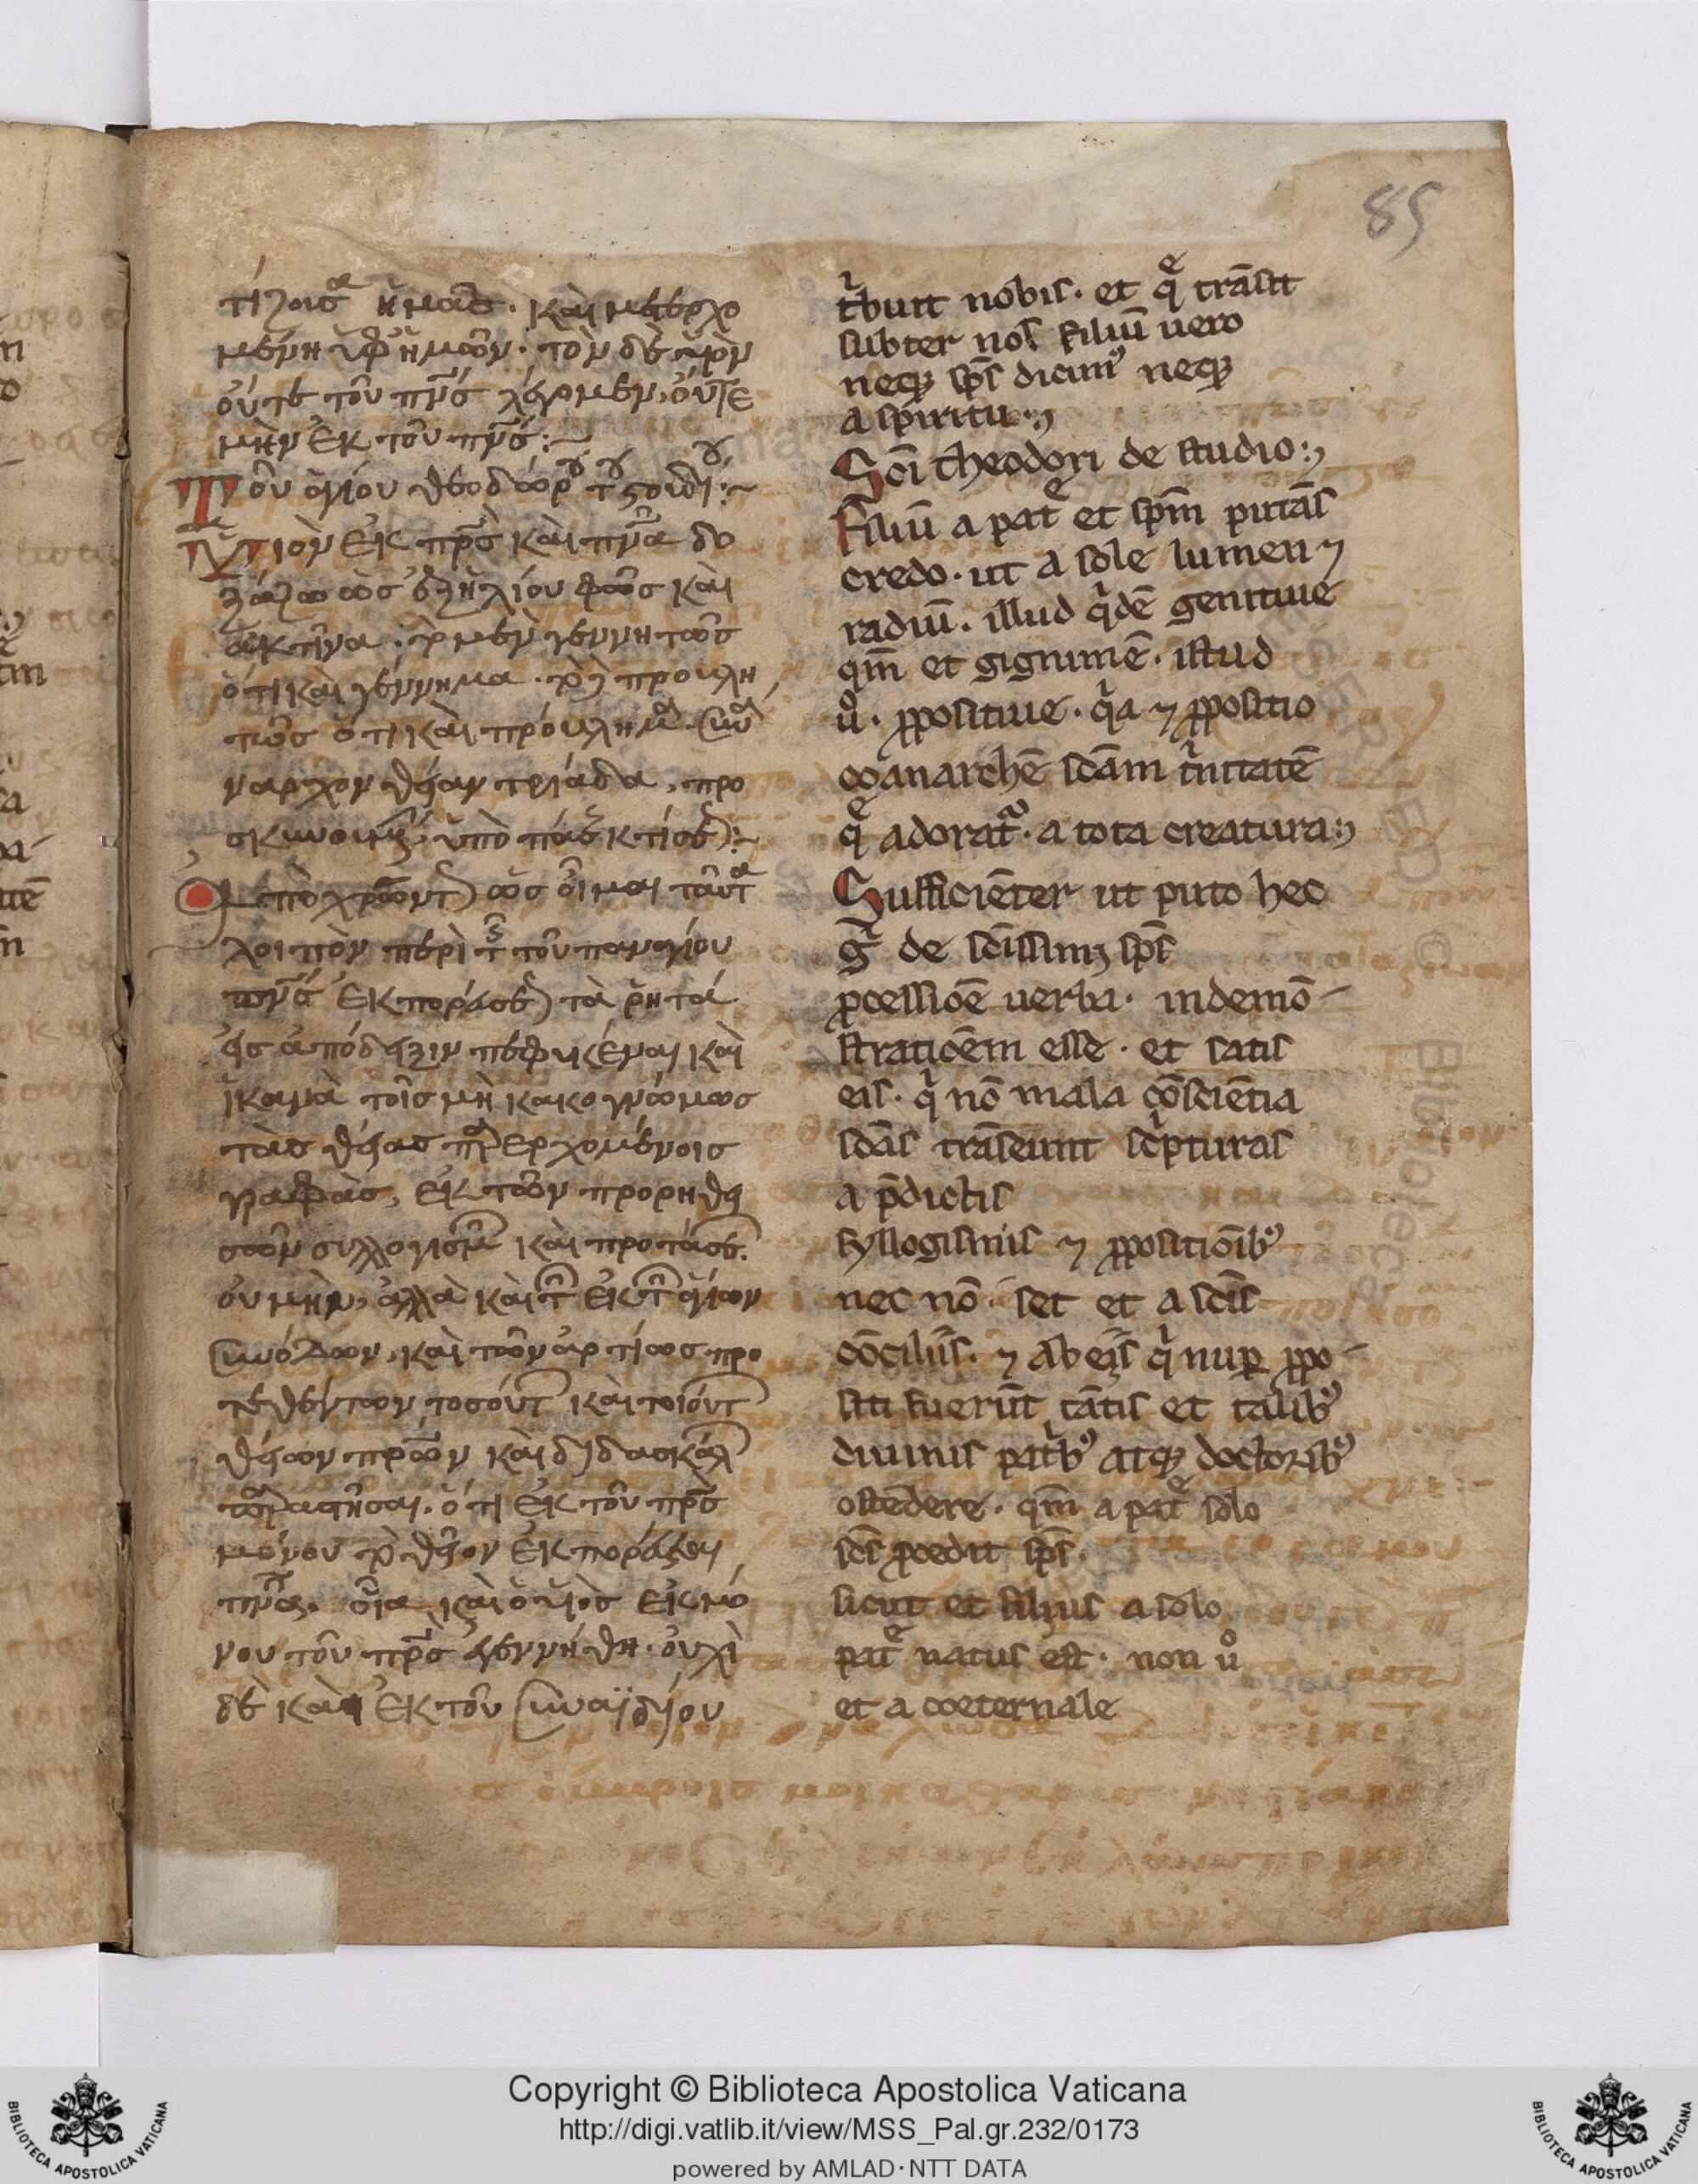 85
τίζουσα ἡμᾶς· καὶ μετερχο
μένη ὑφ' ἡμῶν· τὸν δὲ υἱὸν
οὔτε τοῦ πνς λέγομεν, οὔτε
μὴν ἐκ τοῦ πνς:~
Τοῦ ἁγίου θεοδώρου τοῦ στουδίου:~
Υἱὸν ἐκ πρς καὶ πνα δο
ξάζω ὡς ἐξ ἡλίου φῶς καὶ
ἀκτῖνα· τὸ μὲν γεννητῶς
ὅτι καὶ γέννημα· τὸ δὲ προβλη
τῶς ὅτι καὶ πρόβλημα· συνα
ναρχον θείαν τριάδα, προ
σκυνουμένην ὑπὸ πάσης κτίσεως:~
Ἀποχρώντως ὡς οἶμαι ταῦτα
λοιπὸν περὶ τῆς τοῦ παναγίου
πνς ἐκπορεύσεως τὰ ῥητά
εἰς ἀπόδειξιν πεφυκέναι καὶ
ἱκανὰ τοῖς μὴ κακογνώμως
τὰς θείας παρερχομένοις
γραφὰς, ἐκ τῶν προρηθει
σῶν συλλογισμῶν καὶ προτάσεων.
οὐ μὴν, ἀλλὰ καὶ τῶν ἐκ τῶν ἁγίων
συνόδων, καὶ τῶν ἀρτίως προ
τεθέντων τοσούτων καὶ τοιούτων
θείων πρων καὶ διδασκάλων
παραστῆσαι· ὅτι ἐκ τοῦ πρς
μόνου τὸ θεῖον ἐκπορεύεται
πνα. οἷα καὶ ὁ υἱὸς ἐκ μό
νου τοῦ πρς ἐγεννήθη· οὐχὶ
δὲ καὶ ἐκ τοῦ συναϊδίου
tbuit nobis· et q trasit
subter nos filiu vero
neq sps dicim neq
a spiritu·
Sci theodori de studio:
Filiu a pat et spm putas
credo· ut a sole lumen ⁊
radiu· illud qde genitive
qm et gignime· istud
u· ppositive· qa ⁊ ppositio
coanarche scam tnitate
q adorat· a tota creatura:
Sufficienter ut puto hec
g de scissimi sps
pcessioe verba· indemo-
stratioem esse· et satis
eis· q no mala coscientia
scas traseunt scpturas
a pdictis
syllogismis ⁊ ppositioib
nec no· set et a scis
cociliis· ⁊ ab eis q nup ppo-
siti fuerut tatis et talib
divinis patb atq doctorib
ostedere· qm a pat solo
scs pcedit sps·
sicut et filius a solo
pat natus est· non u
et a coeternale
Copyright © Biblioteca Apostolica Vaticana
http://digi.vatlib.it/view/MSS_Pal.gr.232/0173
powered by AMLAD·NTT DATA
BIBLIOTECA APOSTOLICA VATICANA
BIBLIOTECA APOSTOLICA VATICANA